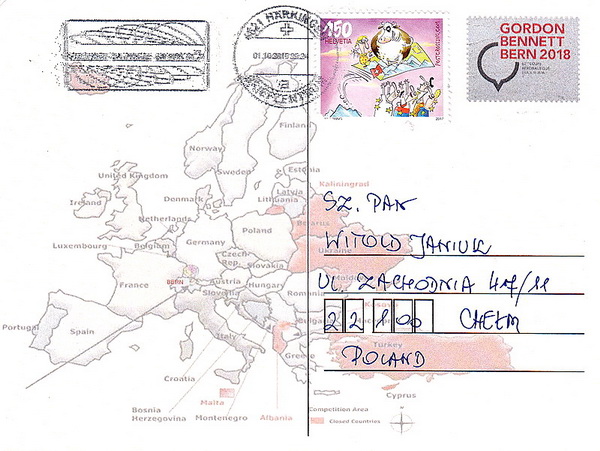 4621 HÄRKINGEN
01.10.2018
BRIEFZENTRUM
150
HELVETIA
2017
GORDON
BENNETT
BERN 2018
SZ. PAN
WITOLD JANIUK
UL. ZACHODNIA 47/11
22 100 CHEŁM
POLAND
Norway
Finland
Sweden
Estonia
Latvia
Lithuania
Kaliningrad
United Kingdom
Ireland
Denmark
Netherlands
Belarus
Poland
Germany
Luxembourg
Belgium
Czech
Rep.
Ukraine
Slovakia
Moldova
France
BERN
Austria
Hungary
Slovenia
Romania
Kosovo
Bulgaria
Macedonia
Portugal
Spain
Italy
Greece
Turkey
Croatia
Malta
Cyprus
Bosnia
Herzegovina
Montenegro
Albania
Competition Area
Closed Countries